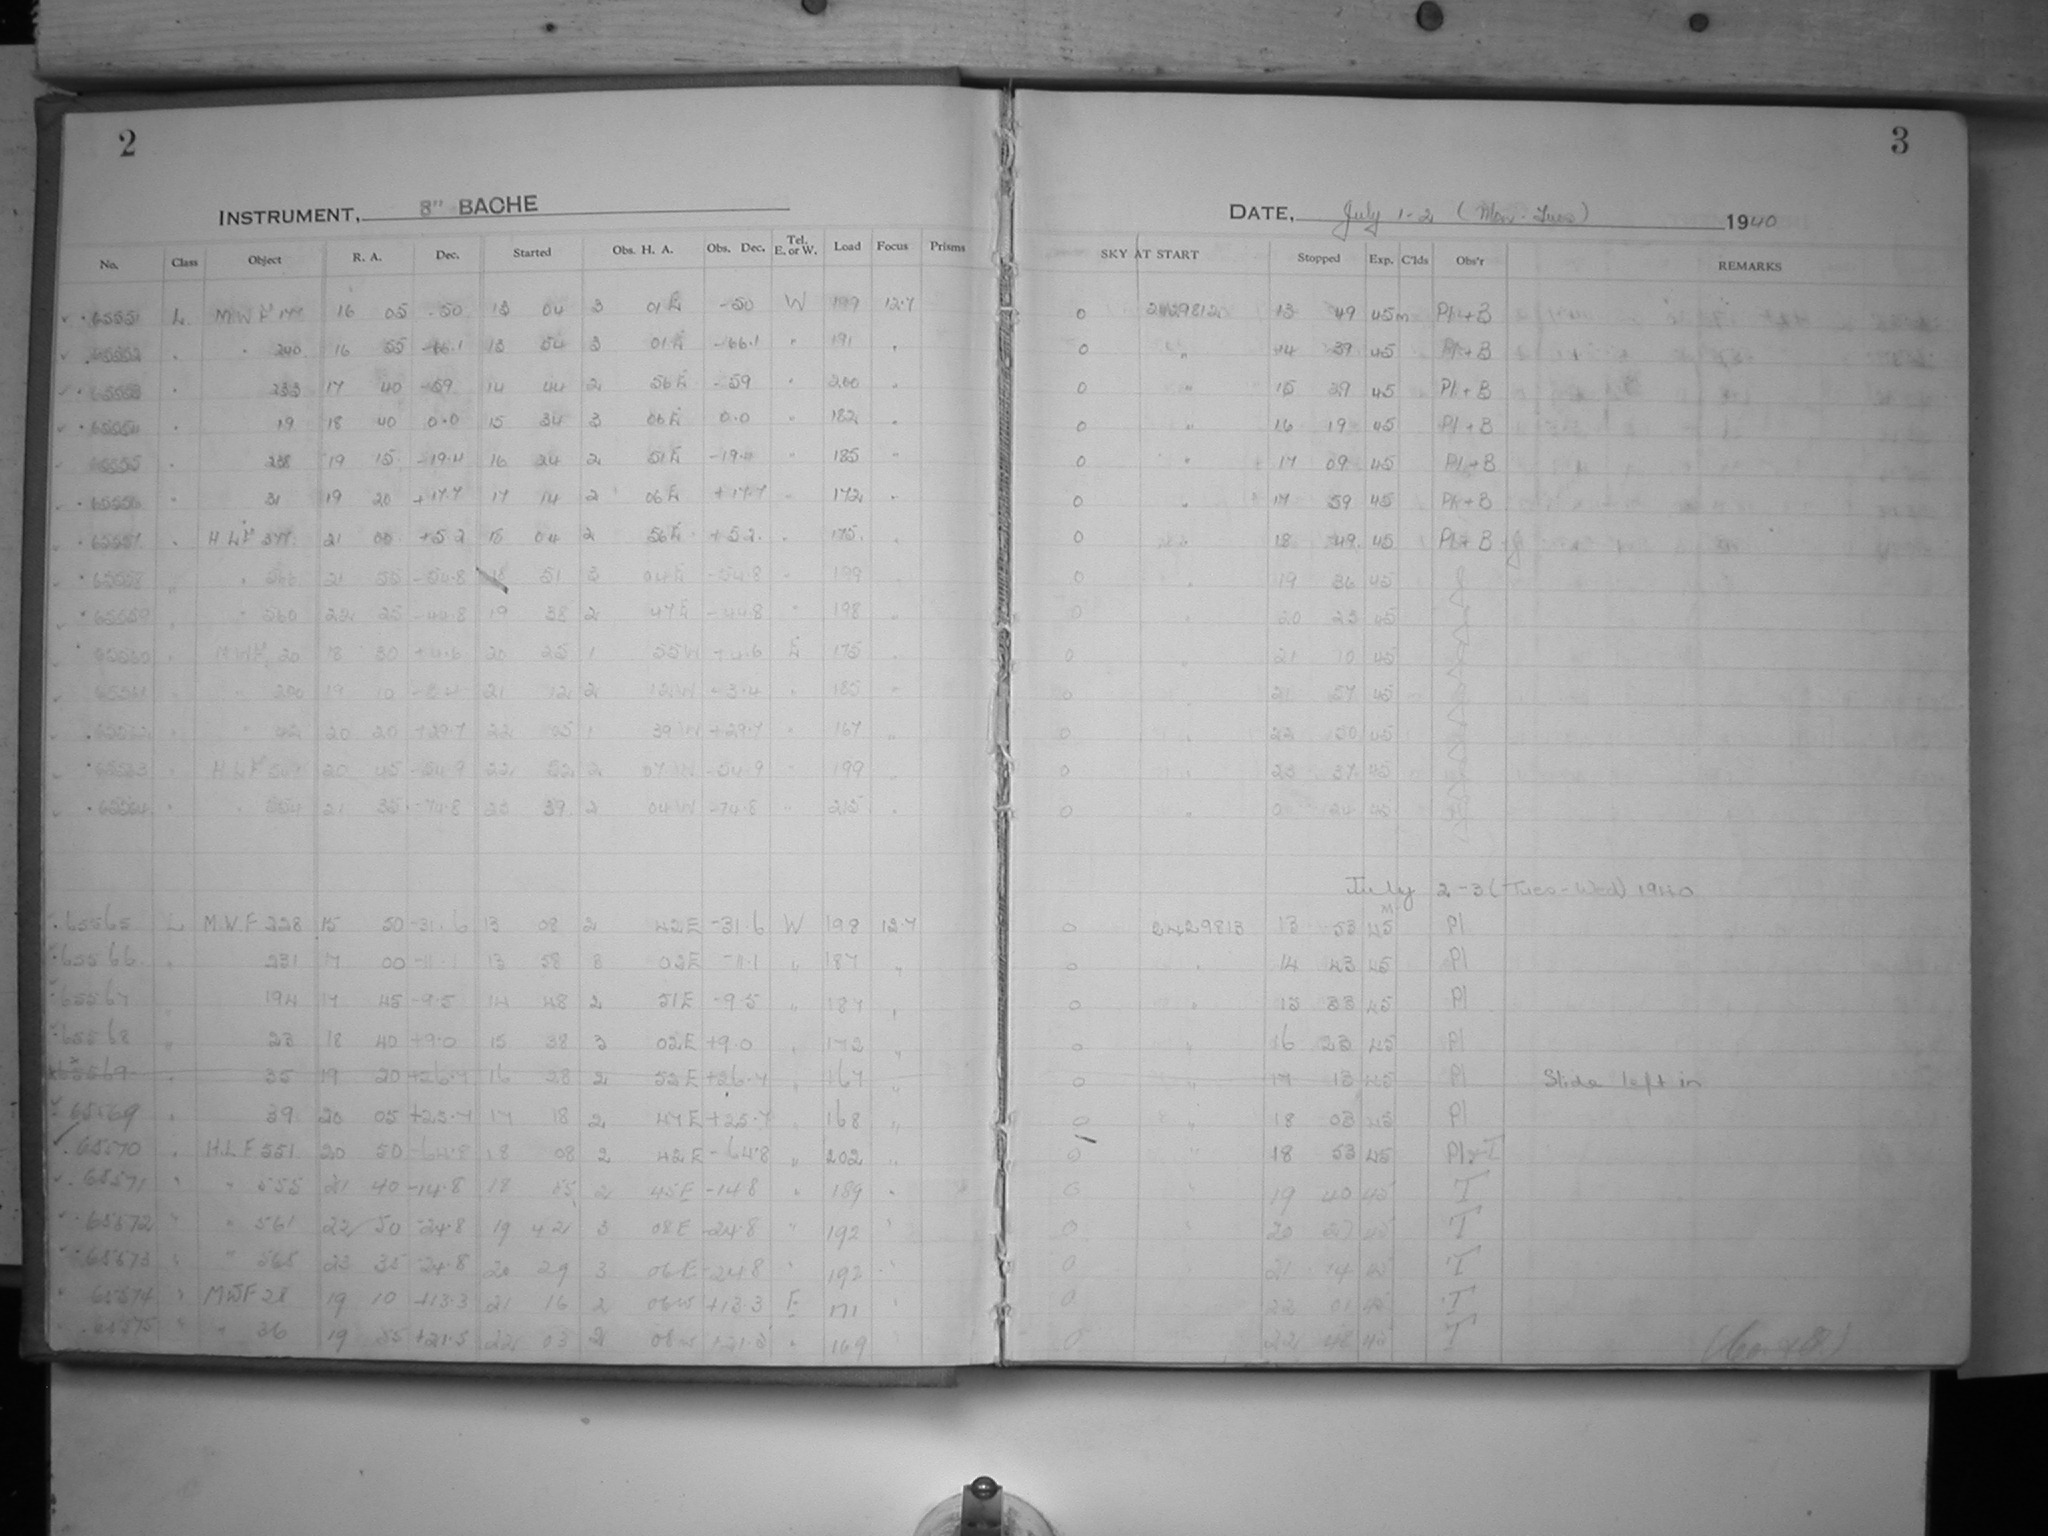 2
INSTRUMENT, 8" BACHE
No. Class Object R. A. Dec. Started Obs. H. A. Obs. Dec. Tel. E. or W. Load Focus Prisms
65551 L M.W.F 177 16 05 -50 13 04 3 01 E -50 W 199 12.7
65552 " " 240 16 55 -66.1 13 54 3 01 E -66.1 " 191 "
65553 " 233 17 40 -59 14 44 2 56 E -59 " 200 "
65554 " 19 18 40 0.0 15 34 3 06 E 0.0 " 182 "
65555 19 15 16 24 2 51 E " 185 "
65556 " 31 19 20 +17.7 17 14 2 06 E +17.7 " 172 "
65557 " H L F 21 05 +5.2 18 04 2 56 E +5.2 " 175 "
65558 " " 21 55 -54.8 18 51 3 04 E -54.8 " 199 "
65559 " " 560 22 25 -44.8 19 38 2 47 E -44.8 " 198 "
65560 " M W F 20 18 30 +4.6 20 25 1 55 W +4.6 E 175 "
65561 " " 200 19 10 21 12 2 12 W -3.4 " 185 "
65562 " " 42 20 20 +29.7 22 05 1 39 W +29.7 " 167 "
65563 " H L F 20 45 -54.9 22 52 2 07 W -54.9 " 199 "
65564 " " 554 21 35 -74.8 23 39 2 04 W -74.8 " 215 "
65565 L M.W.F 228 15 50 -31.6 13 08 2 42 E -31.6 W 198 12.7
65566 " 231 17 00 -11.1 13 58 3 02 E -11.1 " 187 "
65567 194 17 45 -9.5 14 48 2 51 E -9.5 " 187 "
65568 " 23 18 40 +9.0 15 38 3 02 E +9.0 " 172 "
65569 " 35 19 20 +26.7 16 28 2 52 E +26.7 " 167 "
65569 " 39 20 05 +25.7 17 18 2 47 E +25.7 " 168 "
65570 " H.L.F 551 20 50 -64.8 18 08 2 42 E -64.8 " 202 "
65571 " " 555 21 40 -14.8 18 55 2 45 E -14.8 " 189 "
65572 " " 561 22 50 -24.8 19 42 3 08 E -24.8 " 192 "
65573 " " 565 23 35 -24.8 20 29 3 06 E -24.8 " 192 "
65574 " MWF 28 19 10 +13.3 21 16 2 06 W +13.3 E 171 "
65575 " " 36 19 55 +21.5 22 03 2 08 W +21.5 " 169 "
3
DATE, July 1-2 (Mon-Tues) 1940
SKY AT START Stopped Exp. C'lds Obs'r REMARKS
0 2429812 13 49 45m Pl + B
0 " 14 39 45 Pl + B
0 " 15 29 45 Pl + B
0 " 16 19 45 Pl + B
0 " 17 09 45 Pl + B
0 " 17 59 45 Pl + B
0 " 18 49 45 Pl + B + J
0 " 19 36 45 J
0 " 20 23 45 J
0 " 21 10 45 J
0 " 21 57 45 J
0 " 22 50 45 J
0 " 23 37 45 J
0 " 0 24 45 J
July 2-3 (Tues-Wed) 1940
0 2429813 13 53 45 M Pl
0 " 14 43 45 Pl
0 " 15 33 45 Pl
0 " 16 23 45 Pl
0 " 17 13 45 Pl Slide left in
0 " 18 03 45 Pl
0 " 18 53 45 Pl + T
0 " 19 40 45 T
0 " 20 27 45 T
0 " 21 14 45 T
0 22 01 45 T
0 22 48 45 T